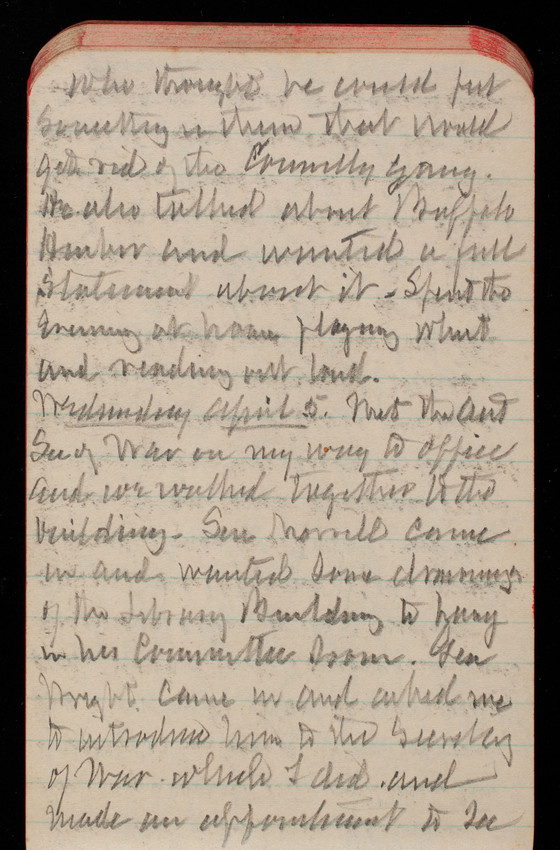 who thought he could put
something in them that would
get rid of the Connelly gang.
He also talked about Buffalo
Harbor and wanted a full
Statement about it - Spent the
Evening at home playing Whist
and reading out loud.
Wednesday April 5. Met the Asst
Sec of War on my way to office
and we walked together to the
building. Sen Morrill came
in and wanted some drawings
of the Library Building to hang
in his Committee room. Gen
Wright came in and asked me
to introduce him to the Secretary
of War which I did and
made an appointment to see